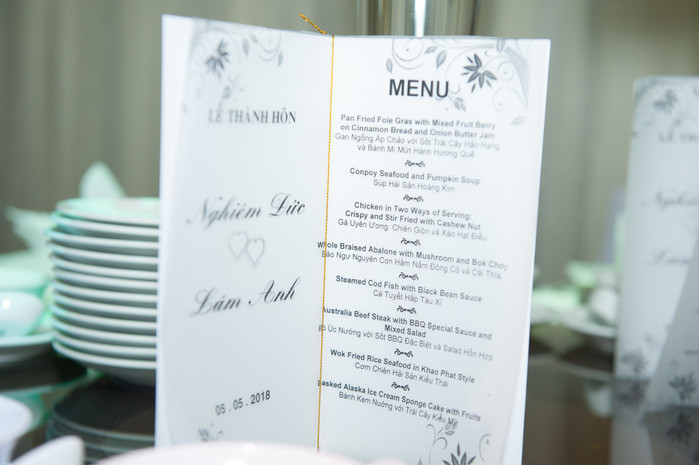 LỄ THÀNH HÔN
Nghiêm Đức
Lâm Anh
05 . 05 . 2018
MENU
Pan Fried Foie Gras with Mixed Fruit Berry
on Cinnamon Bread and Onion Butter Jam
Gan Ngỗng Áp Chảo với Sốt Trái Cây Hảo Hạng
và Bánh Mì Mứt Hành Hương Quế
Conpoy Seafood and Pumpkin Soup
Súp Hải Sản Hoàng Kim
Chicken in Two Ways of Serving:
Crispy and Stir Fried with Cashew Nut
Gà Uyên Ương: Chiên Giòn và Xào Hạt Điều
Whole Braised Abalone with Mushroom and Bok Choy
Bào Ngư Nguyên Con Hầm Nấm Đông Cô và Cải Thìa
Steamed Cod Fish with Black Bean Sauce
Cá Tuyết Hấp Tàu Xì
Australia Beef Steak with BBQ Special Sauce and
Mixed Salad
Bò Úc Nướng với Sốt BBQ Đặc Biệt và Salad Hỗn Hợp
Wok Fried Rice Seafood in Khao Phat Style
Cơm Chiên Hải Sản Kiểu Thái
asked Alaska Ice Cream Sponge Cake with Fruits
Bánh Kem Nướng với Trái Cây Kiểu Mỹ
LỄ T